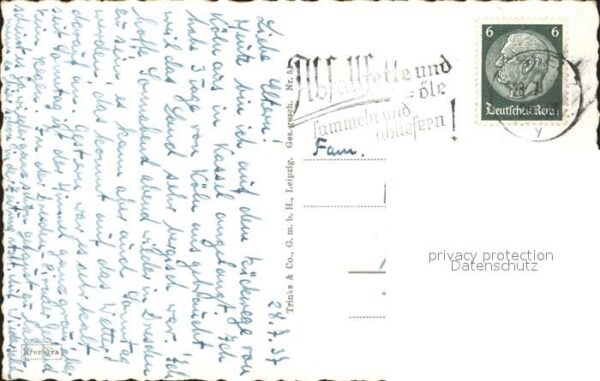 28.7.37
Liebe Eltern!
Heute bin ich auf dem Rückwege von
Köln aus in Kassel angelangt. Ich
habe 3 Tage von Köln aus gebraucht
weil das Land sehr bergisch war. Ich
hoffe Sonnabend abend wieder in Dresden
zu sein, es kann aber auch Sonntag
werden, das kommt auf das Wetter
darauf an. Gestern war es sehr kalt
seit Sonntag ist der Himmel ganz grau, bei
Trinks & Co., G. m. b. H., Leipzig. Ges. gesch. Nr.
Abfallfette und
öle
sammeln und
abliefern!
6 6
Deutsches Reich
Fam.
privacy protection
Datenschutz